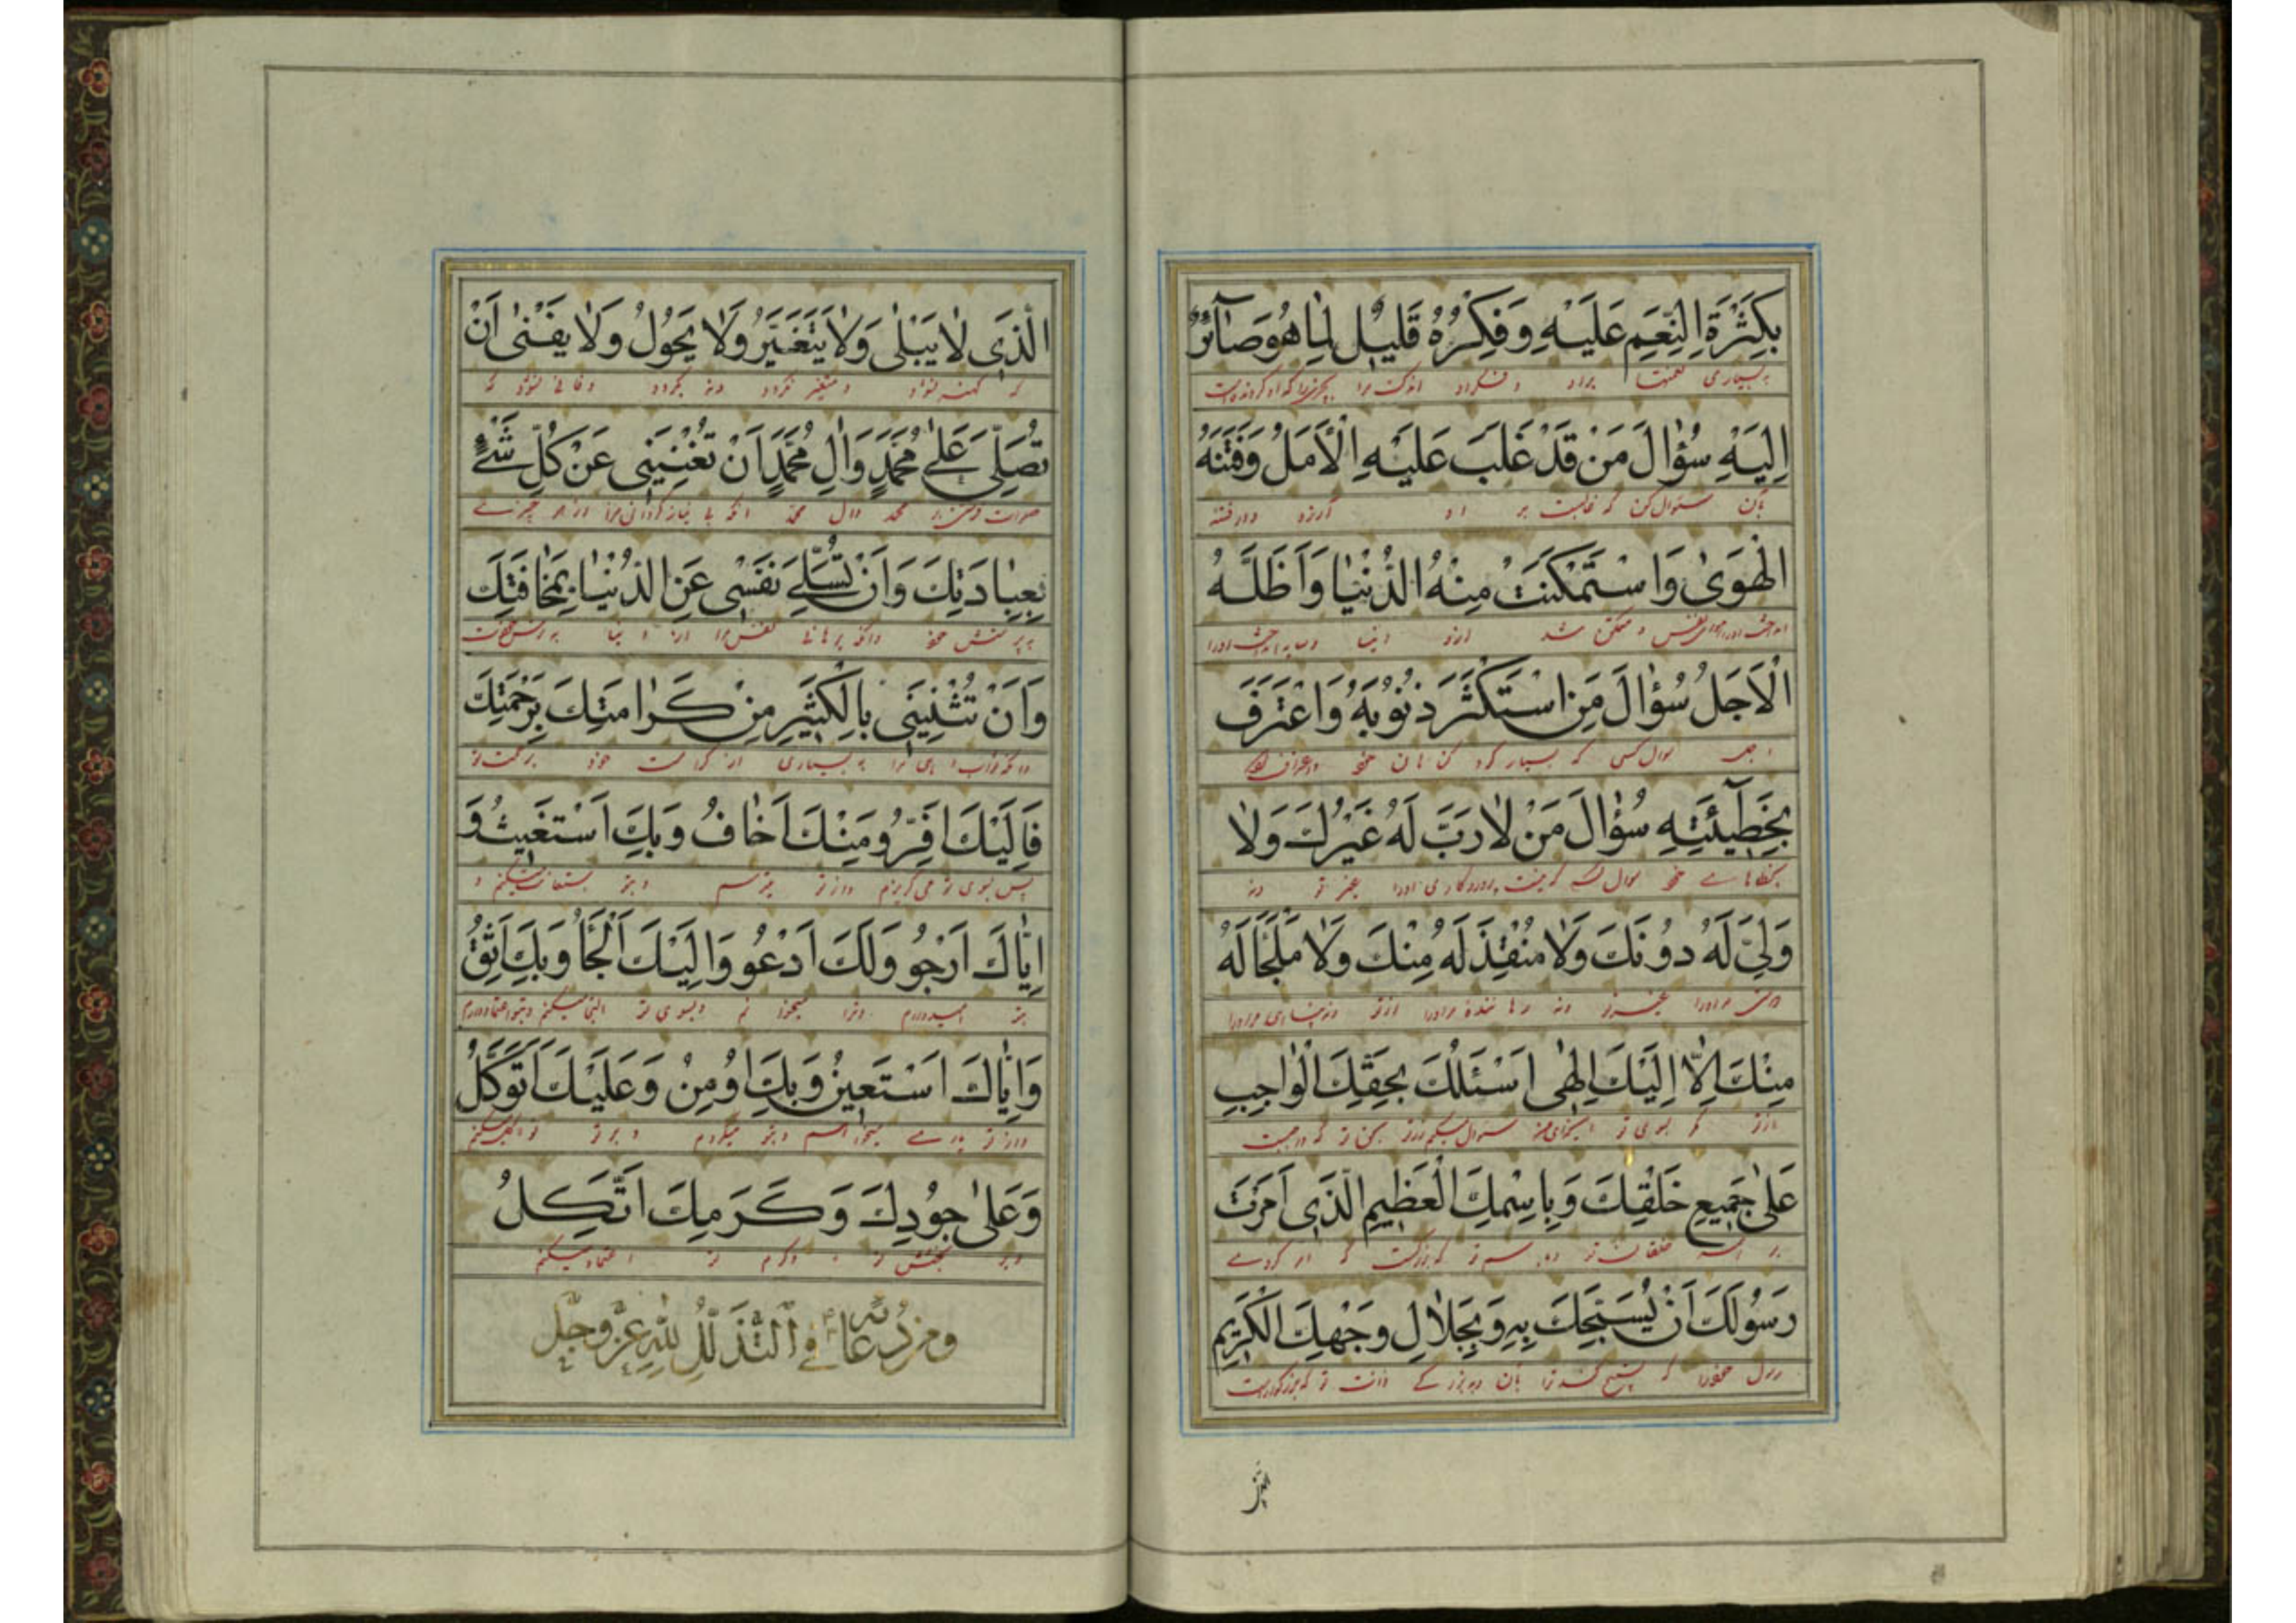 بِكَثْرَةِ النِّعَمِ عَلَيْهِ وَفِكْرُهُ قَليلٌ لِمَا هُوَ صَآئِرٌ
به بسیاری نعمتها براو و فکر او اندکست مرا
اِلَيْهِ سُؤٰالَ مَنْ قَدْ غَلَبَ عَلَيْهِ الْاَمَلُ وَفَتَنَهُ
بآن سئوال کن که غالبست بر او آرزو و در فتنه
الْهَوىٰ وَاسْتَمْكَنَتْ مِنْهُ الدُّنْيٰا وَاَظَلَّهُ
و متمکن شد ازو دنیا و سایه انداخت اورا
الْاَجَلُ سُؤٰالَ مَنِ اسْتَكْثَرَ ذُنُوبَهُ وَاعْتَرَفَ
اجل سوال کسی که بسیار کرد گناهان خود و اعتراف
بِخَطيٓئَتِهِ سُؤٰالَ مَنْ لٰا رَبَّ لَهُ غَيْرُكَ وَلٰا
بخطاهاے خود سوال که نیست پروردگاری اورا غیر تو و نه
وَلِيَّ لَهُ دُونَكَ وَلٰا مُنْقِذَ لَهُ مِنْكَ وَلٰا مَلْجَأَ لَهُ
مراورا غیر تو و نه رها کننده مراورا از تو و نه پناهی مراورا
مِنْكَ اِلّٰا اِلَيْكَ اِلٰهى اَسْئَلُكَ بِحَقِّكَ الْوٰاجِبِ
از تو مگر بسوی تو سئوال میکنم از تو بحق تو که واجبست
عَلىٰ جَميعِ خَلْقِكَ وَبِاسْمِكَ الْعَظيمِ الَّذى اَمَرْتَ
بر همه خلقان تو و به اسم تو که بزرگست که امر کردے
رَسُولَكَ اَنْ يُسَبِّحَكَ بِهِ وَبِجَلٰالِ وَجْهِكَ الْكَريمِ
رسول خودرا که تسبیح کند ترا بآن و به بزرگے ذات تو که بزرگوارست
الَّذى
الَّذى لٰا يَبْلىٰ وَلٰا يَتَغَيَّرُ وَلٰا يَحُولُ وَلٰا يَفْنىٰ اَنْ
که کهنه نشود و متغیر نگردد و نه بگردد و فانی نشود که
تُصَلِّىَ عَلىٰ مُحَمَّدٍ وَاٰلِ مُحَمَّدٍ اَنْ تُغْنِيَنى عَنْ كُلِّ شَىْءٍ
صلوات فرستی بر محمد وآل محمد آنکه بی نیاز گردانی مرا از هر چیزے
بِعِبٰادَتِكَ وَاَنْ تُسَلِّىَ نَفْسى عَنِ الدُّنْيٰا بِمَخٰافَتِكَ
به پرستش خود و آنکه برهانی نفس مرا از دنیا
وَاَنْ تُثْنِيَنى بِالْكَثيرِ مِنْ كَرٰامَتِكَ بِرَحْمَتِكَ
به بسیاری از کرامت خود برحمت تو
فَاِلَيْكَ اَفِرُّ وَمِنْكَ اَخٰافُ وَبِكَ اَسْتَغيثُ وَ
پس بسوی تو می گریزم و از تو میترسم و بتو استغاثه میکنم و
اِيّٰاكَ اَرْجُو وَلَكَ اَدْعُو وَاِلَيْكَ اَلْجَأُ وَبِكَ اَثِقُ
بتو امیدوارم و ترا میخوانم و بسوی تو التجا میکنم و بتو اعتماد دارم
وَاِيّٰاكَ اَسْتَعينُ وَبِكَ اُومِنُ وَعَلَيْكَ اَتَوَكَّلُ
و از تو یارے میخواهم و بتو میگروم و بر تو توکل میکنم
وَعَلىٰ جُودِكَ وَكَرَمِكَ اَتَّكِلُ
و بر بخشش تو و کرم تو اعتماد میکنم
ومن دُعائه ع في التَّذَلُّلِ لِلّٰهِ عَزَّ وَجَلَّ